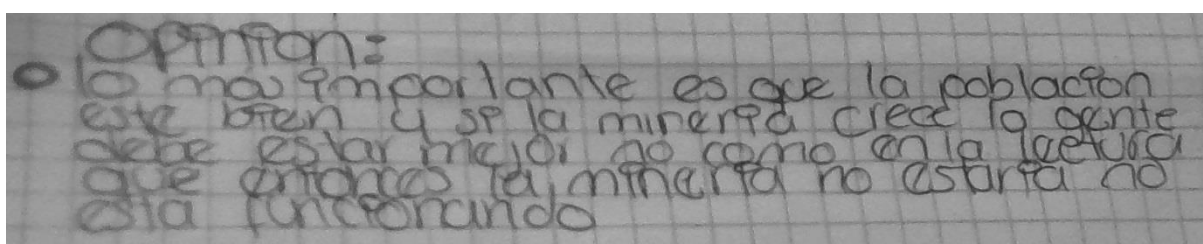 Opinion:
lo mas importante es que la poblacion
este bien y si la mineria crece la gente
debe estar mejor no como en la lectura
que entonces la mineria no estaria no
esta funcionando